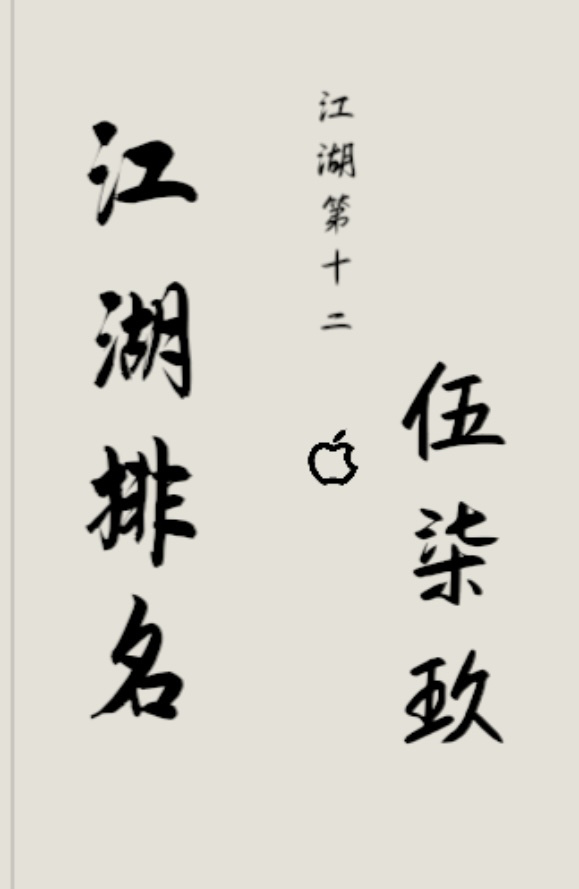 伍柒玖
江湖第十二
江湖排名